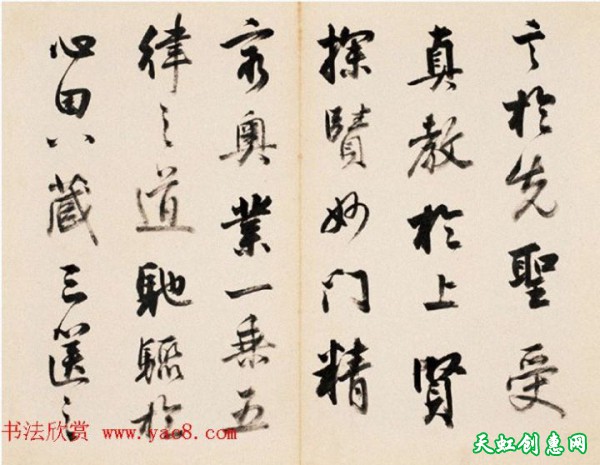 言於先聖受
真教於上賢
探賾妙門精
窮奥業一乗五
律之道馳驟於
心田八藏三篋之
书法欣赏 www.yac8.com
天虹创惠网